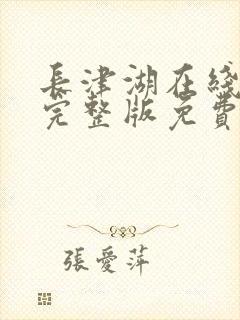 長津湖在綫
完整版免費
張愛萍